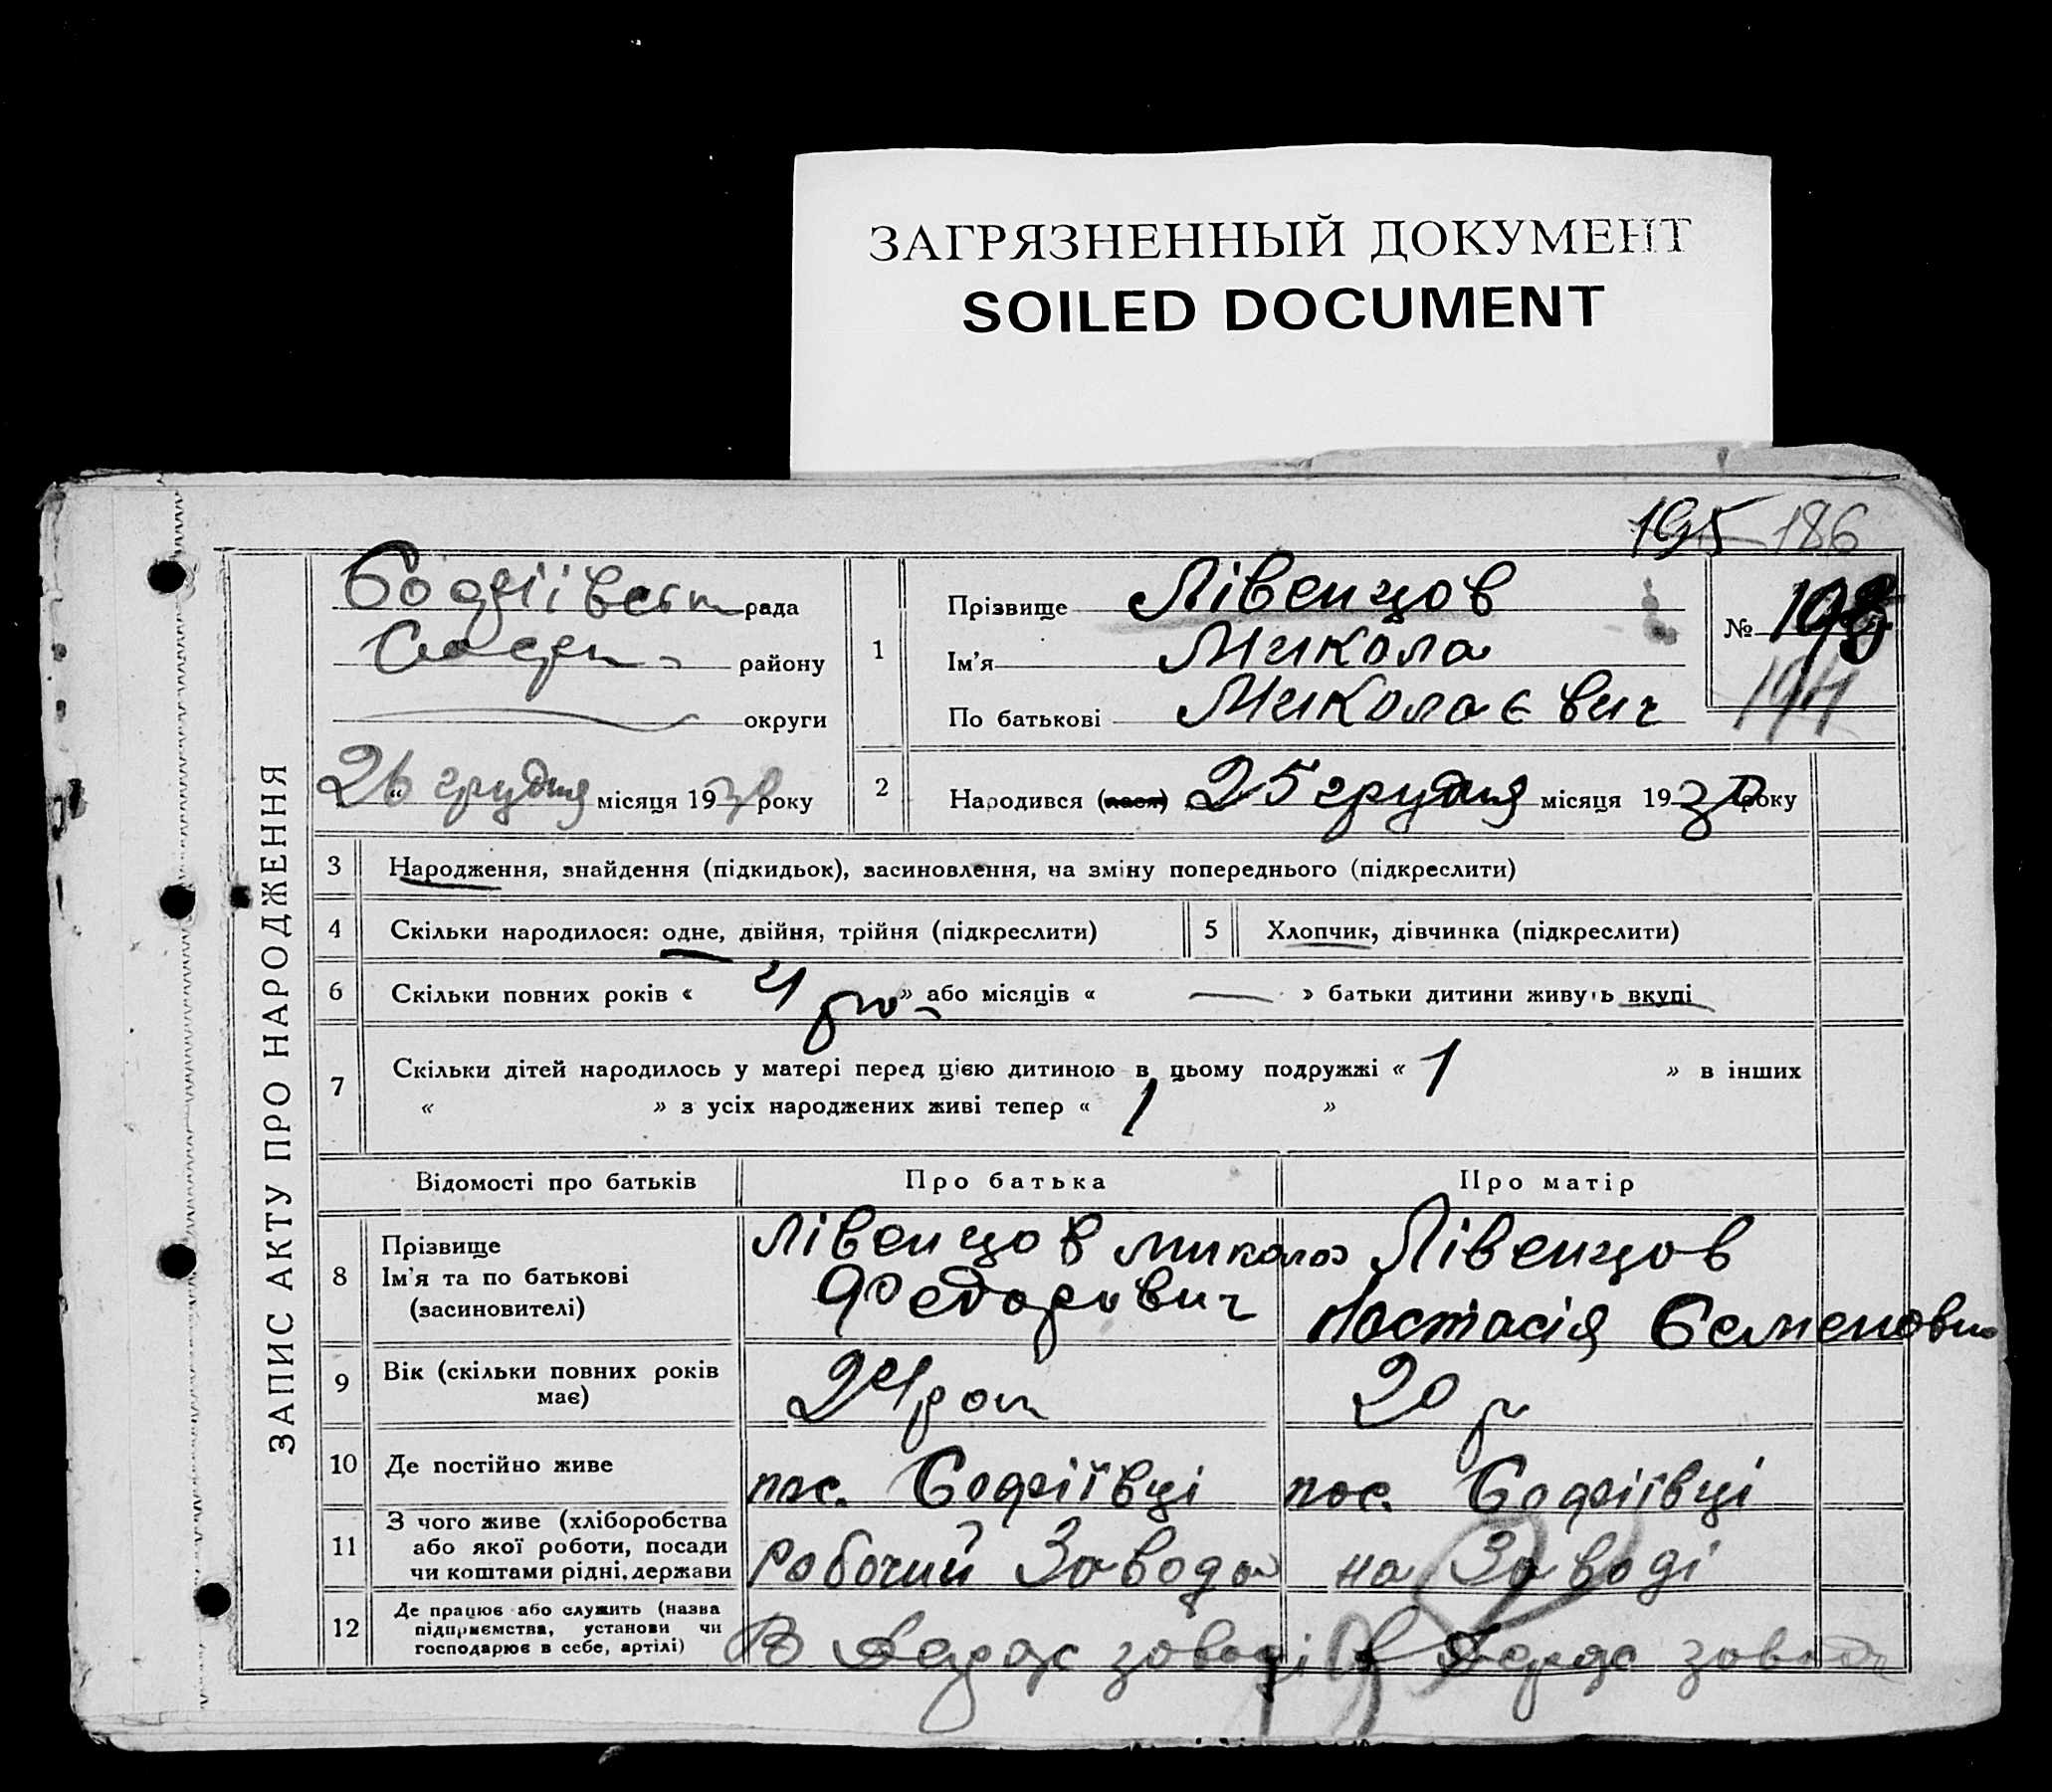 ЗАГРЯЗНЕННЫЙ ДОКУМЕНТ
SOILED DOCUMENT
195 186
ЗАПИС АКТУ ПРО НАРОДЖЕННЯ
рада
району
округи
26 грудня місяця 1930 року
1
Прізвище Лівенцов
Ім'я Микола
По батькові Миколаєвич
№ 198
194
2
Народився (лася) 25 грудня місяця 1930 року
3 Народження, знайдення (підкидьок), засиновлення, на зміну попереднього (підкреслити)
4 Скільки народилося: одне, двійня, трійня (підкреслити) 5 Хлопчик, дівчинка (підкреслити)
6 Скільки повних років « 4 » або місяців « — » батьки дитини живуть вкупі
7 Скільки дітей народилось у матері перед цією дитиною в цьому подружжі « 1 » в інших
« » з усіх народжених живі тепер « 1 »
Відомості про батьків Про батька Про матір
8 Прізвище
Ім'я та по батькові
(засиновителі)
Лівенцов Микола
Федорович
Лівенцов
Настасія Семеновна
9 Вік (скільки повних років
має)
24 рок
20 р
10 Де постійно живе пос. Софіївці пос. Софіївці
11 З чого живе (хліборобства
або якої роботи, посади
чи коштами рідні, держави
Робочий Завода на Заводі
12 Де працює або служить (назва
підприємства, установи чи
господарює в себе, артілі)
В Держ заводі В Держ заводі